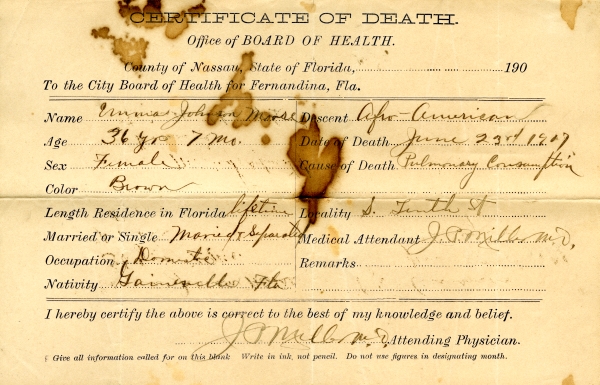 CERTIFICATE OF DEATH.
Office of BOARD OF HEALTH.
County of Nassau, State of Florida, 190
To the City Board of Health for Fernandina, Fla.
Name Emma Johnson Descent Afro-American
Age 36 yrs 7 Mo. Date of Death June 23rd 1907
Sex Female Cause of Death Pulmonary Consumption
Color Brown
Length Residence in Florida lifetime Locality S. Tenth St
Married or Single Married & Separated Medical Attendant J. P. Mills M.D,
Occupation Domestic Remarks
Nativity Gainesville Fla
I hereby certify the above is correct to the best of my knowledge and belief.
Mills M.D, Attending Physician.
Give all information called for on this blank Write in ink, not pencil. Do not use figures in designating month.